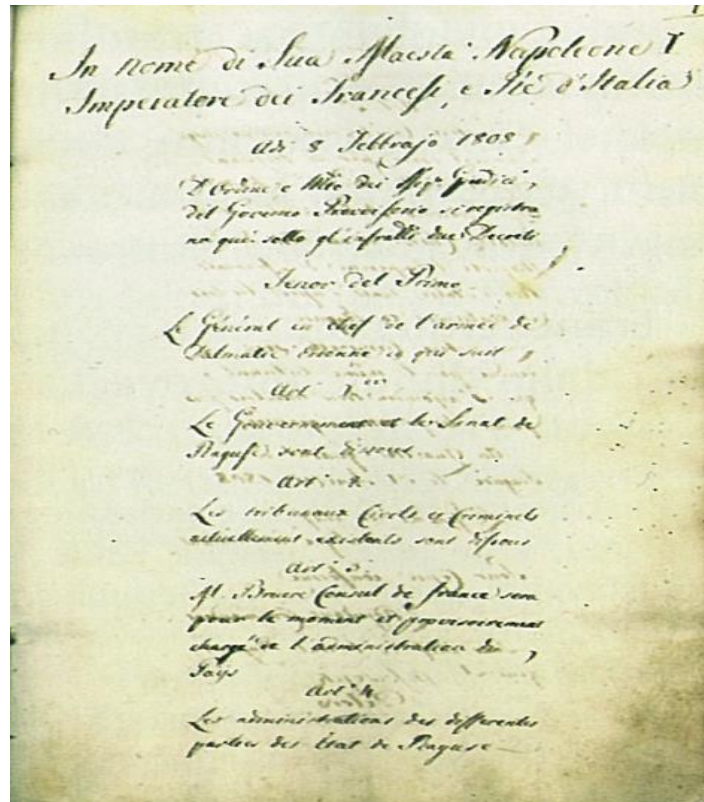 1
In nome di Sua Maestà Napoleone I
Imperatore dei Francesi, e Rè d'Italia
Adi 8 Febbrajo 1808
D'ordine e dei Sigri Giudici,
del Governo Provvisorio si registra-
no qui sotto gl'infratti due Decreti
Tenor del Primo
Le Général en chef de l'armée de
Dalmatie ordonne ce qui suit
Art. 1er
Le Gouvernement et le Senat de
Raguse sont dissous
Art. 2
Les tribunaux Civils et Criminels
actuellement existents sont dissous
Art. 3
M. Bruere Consul de france sera
pour le moment et provisoirement
chargé de l'administration du
Pays
Art. 4
Les administrations des differentes
parties des Etat de Raguse